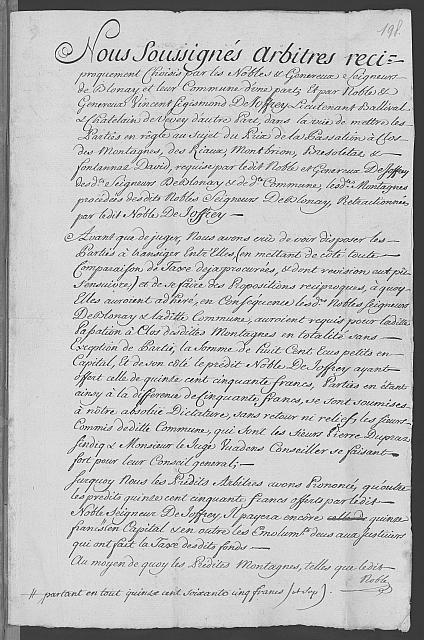 198.
Nous Soussignés Arbitres reci=
proquement Choisis par les Nobles & Genereux Seigneurs
de Blonay et leur Commune d'eme part; Et par Noble &
Genereux Vincent Sigismond De Joffrey Lieutenant Ballival
& Chatelain de Vevey d'autre Part, dans la vüe de mettre les
Parties en regle au Sujet du Prix de la Passation à Clos
des Montagnes, des Riaux, Montbrion, Bresolettaz, &
fontannaz David, requise par ledit Noble et Genereux De Joffrey
des dts Seigneurs De Blonay & de dte Commune, lesdtes Montagnes
procédées desdits Nobles Seigneurs De Blonay, Retractionnées
par ledit Noble De Joffrey —
Avant que de juger, Nous avons crû de voir disposer les
Parties à transiger Entr'Elles, (en mettant de côté toute
Comparaison de Taxe deja procurée, & dont revision aut pû
s'ensuivre) et de se faire des Propositions reciproques, à quoy
Elles auroient adheré, en Consequence lesdts Nobles Seigneurs
De Blonay & ladite Commune, auroient requis pour ladite
Passation à Clos desdites Montagnes en totalité sans —
Exception de Partie, la Somme de huit Cent Ecus petits en
Capital, Et de son côté le prédit Noble De Joffrey ayant
offert celle de quinze cent cinquante francs, Parties en étant
ainsy à la difference de Cinquante francs, se sont soumises
à nôtre absolüe Dictature, sans retour ni relief, les Sieurs
Commis de ditte Commune, qui sont les Sieurs Pierre Dupraz
Sindiq & Monsieur le Juge Viadens Conseiller se faisant
fort pour leur Conseil general; —
Surquoy Nous les Prédits Arbitres avons Prononcé, qu'outre
les prédits quinze cent cinquante francs offerts par ledit
Noble Seigneur De Joffrey, Il payera encôre quinze
francs # en Capital & en outre les Emolumts deus aux Justiciers
qui ont fait la Taxe desdits fonds —
Au moyen de quoy les Prédites Montagnes, telles que ledit
Noble
# partant en tout quinze cent soixante cinq francs